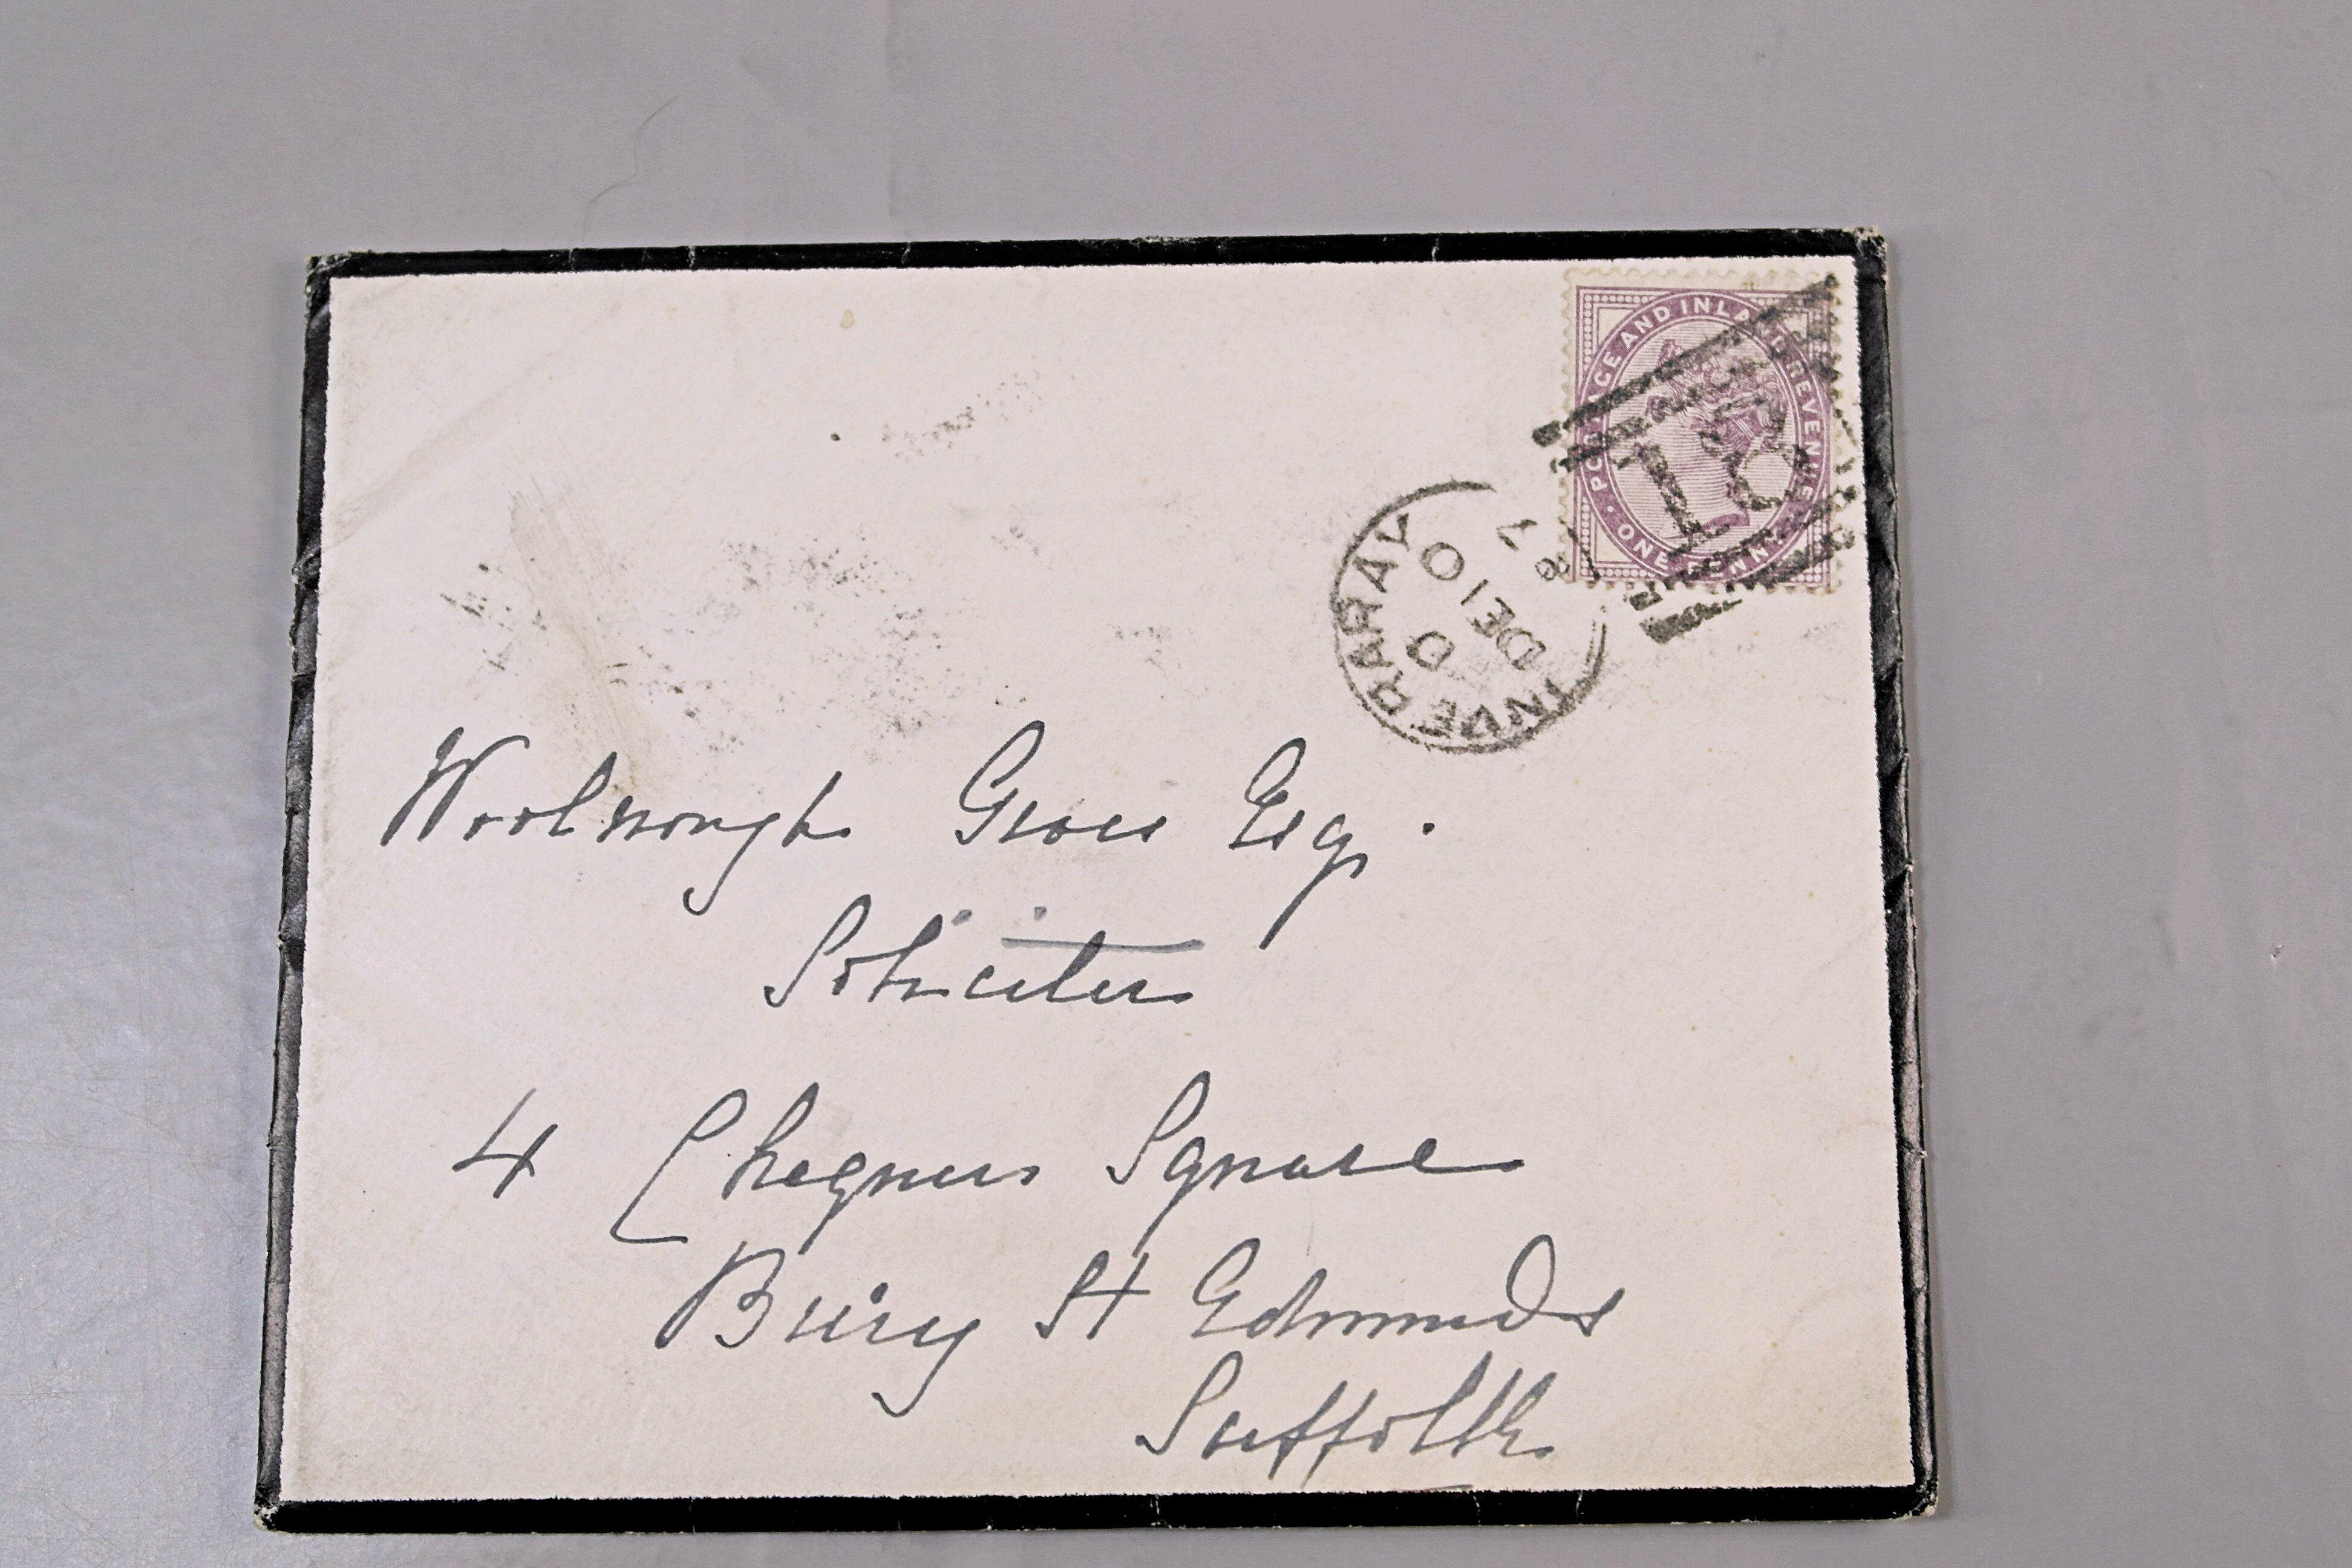 POSTAGE AND INLAND REVENUE · ONE PENNY ·
INVERARAY
D
DE 10
87
Woolnough Gross Esq.
Solicitor
4 Chequer Square
Bury St Edmunds
Suffolk